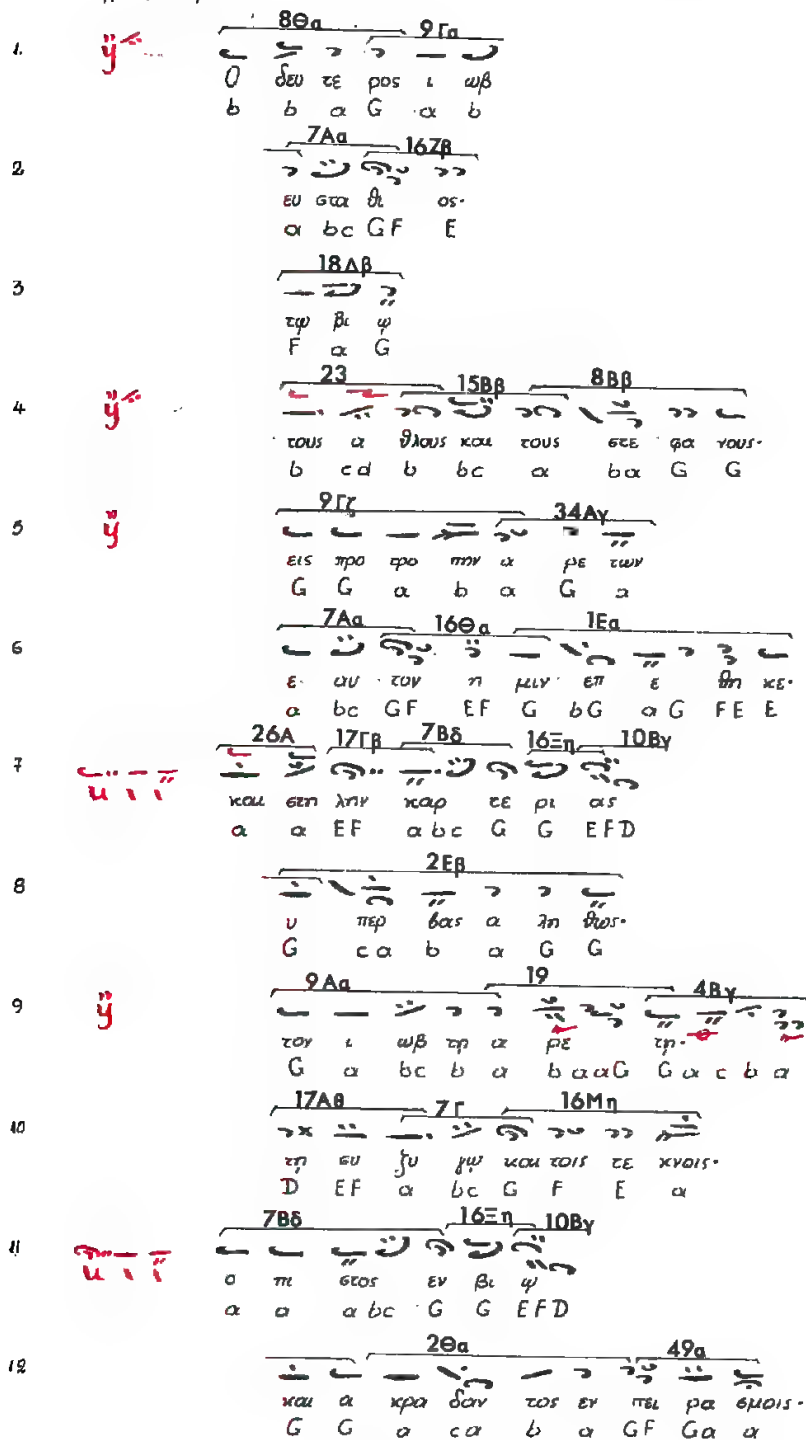 8Θα 9Γα
1. ÿ
Ο δευ τε ρος ι ωβ
b b a G a b
7Αα 16Ζβ
2
ευ στα θι ος·
a bc GF E
18Λβ
3
τῳ βι ῳ
F a G
23 15Ββ 8Ββ
4 ÿ
τους α θλους και τους στε φα νους·
b cd b bc a ba G G
9Γζ 34Αγ
5 ÿ
εις προ τρο πην α ρε των
G G a b a G a
7Αα 16Θα 1Εα
6
ε αυ τον η μιν επ ε θη κε·
a bc GF EF G bG aG FE E
26Α 17Γβ 7Βδ 16Ξη 10Βγ
7
και στη λην καρ τε ρι ας
a a EF abc G G EFD
2Εβ
8
υ περ βας α λη θως·
G ca b a G G
9Αα 19 4Βγ
9 ÿ
τον ι ωβ τῃ α ρε τῃ·
G a bc b a baaG G a c b a
17Αθ 7Γ 16Μη
10
τῃ συ ζυ γῳ και τοις τε κνοις·
D EF a bc G F E a
7Βδ 16Ξη 10Βγ
11
ο πι στος εν βι ῳ
a a abc G G EFD
2Θα 49α
12
και α κρα δαν τος εν πει ρα σμοις·
G G a ca b a GF Ga a